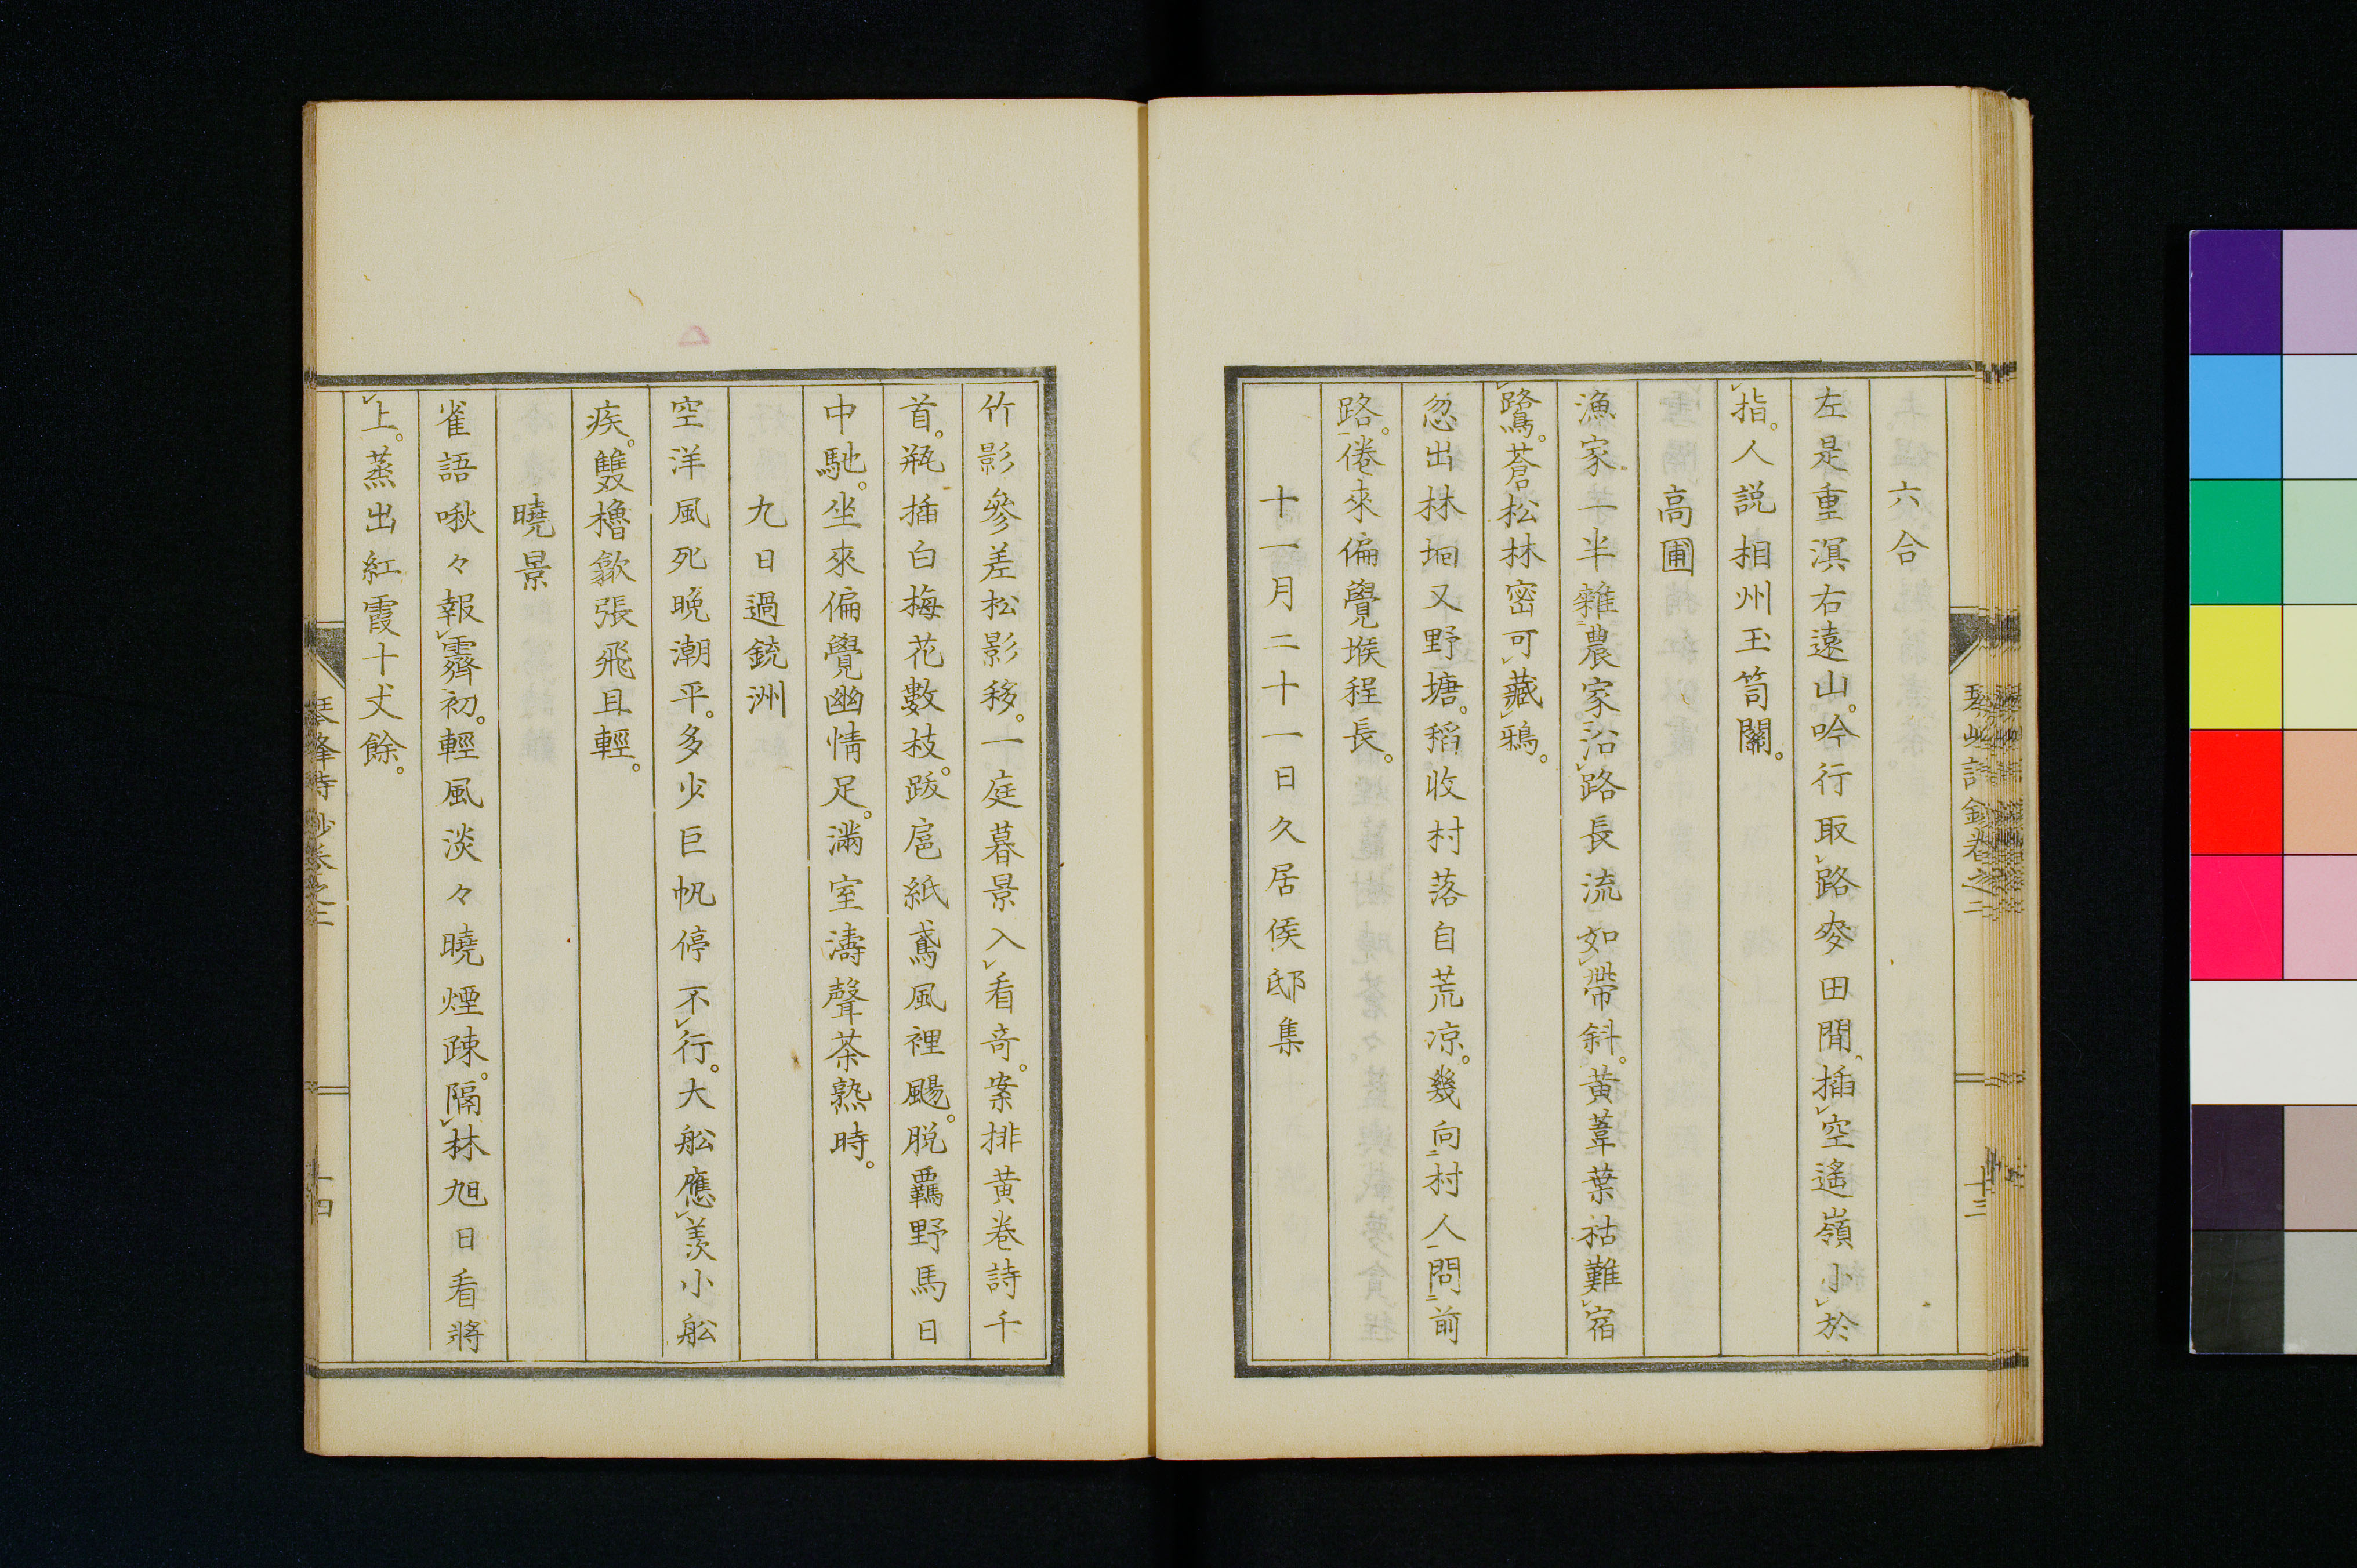 六合
左是重溟右遠山。吟行取路麥田間。插空遙嶺小於
指。人説相州玉笥關。
高圃
漁家一半雜農家沿路長流如帶斜。黃葦葉枯難宿
鷺。蒼松林密可藏鴉。
忽出林坰又野塘。稻收村落自荒涼。幾向村人問前
路。倦來偏覺堠程長。
十一月二十一日久居侯邸集
竹影參差松影移。一庭暮景入看奇。案排黃卷詩千
首。瓶插白梅花數枝。跋扈紙鳶風裡颺。脱覊野馬日
中馳。坐來偏覺幽情足。滿室濤聲茶熟時。
九日過銃洲
空洋風死晚潮平。多少巨帆停不行。大舩應羨小舩
疾。雙櫓歙張飛且輕。
曉景
雀語啾々報霽初。輕風淡々曉煙踈。隔林旭日看將
上。蒸出紅霞十丈餘。
琴峰詩鈔卷之二
十四